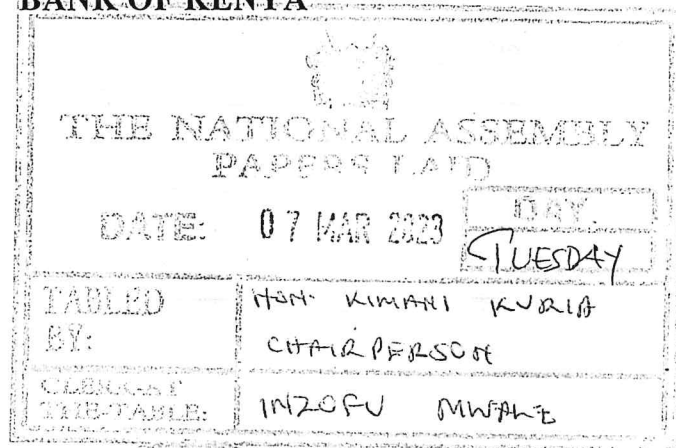 BANK OF KENYA
THE NATIONAL ASSEMBLY
PAPERS LAID
DATE: 07 MAR 2023
DAY.
TUESDAY
TABLED BY:
HON. KIMANI KURIA
CHAIRPERSON
CLERK-AT THE-TABLE:
INZOFU MWALE